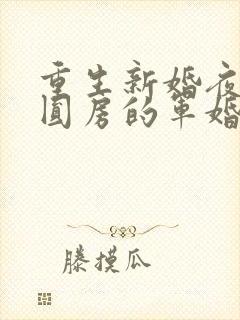 重生新婚夜
圆房的军婚
藤摸瓜